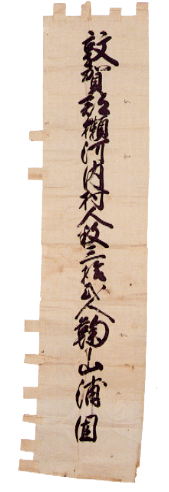 敦賀郡獺河内村人数三拾弐人鞠山浦固